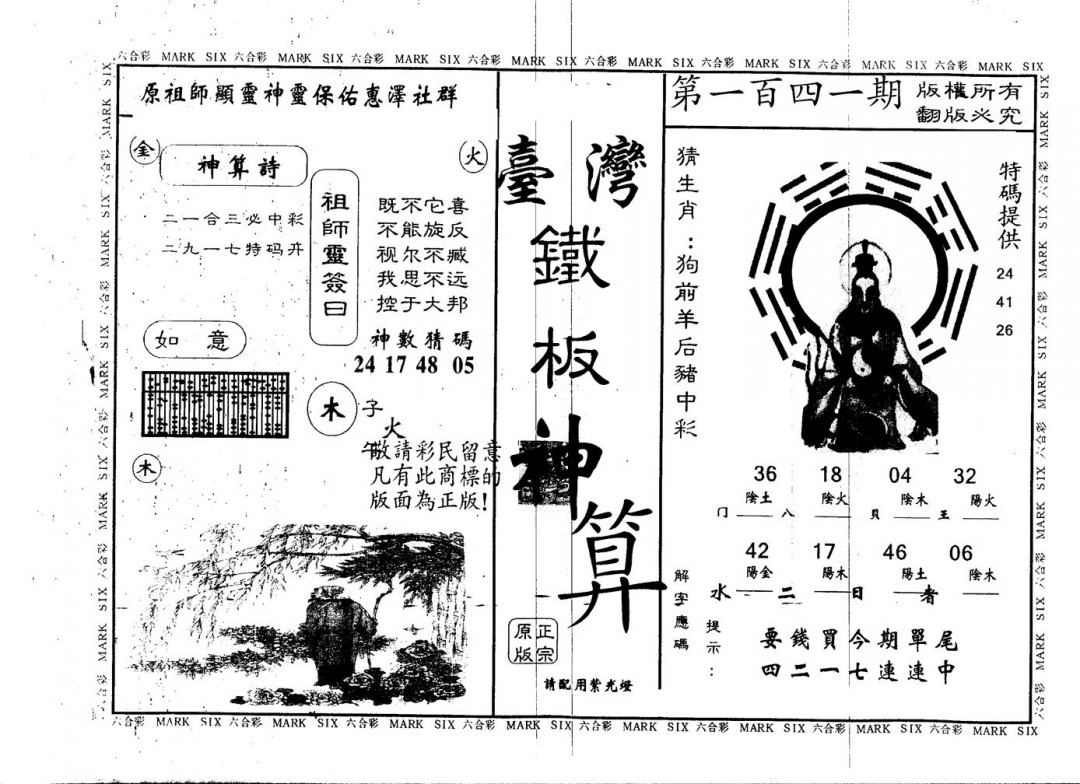 六合彩 MARK SIX 六合彩 MARK SIX 六合彩 MARK SIX 六合彩 MARK SIX 六合彩 MARK SIX 六合彩 MARK SIX 六合彩 MARK SIX 六合彩 MARK SIX
原祖師顯靈神靈保佑惠澤社群
金
神算詩
火
二一合三必中彩
二九一七特码弁
祖師靈簽曰
既不它喜
不能旋反
视尔不臧
我思不远
控于大邦
神數猜碼
24 17 48 05
如 意
木
子
火
午
木
敬請彩民留意
凡有此商標的
版面為正版!
臺灣
鐵板神算
正宗
原版
請配用紫光燈
第一百四一期
版權所有
翻版必究
猜生肖:狗前羊后豬中彩
特碼提供
24
41
26
36 18 04 32
陰土 陰火 陰木 陽火
门 八 貝 王
42 17 46 06
陽金 陽木 陽土 陰木
水 二 日 者
解字應碼
提示:
要錢買今期單尾
四二一七連連中
六合彩 MARK SIX 六合彩 MARK SIX 六合彩 MARK SIX 六合彩 MARK SIX 六合彩 MARK SIX 六合彩 MARK SIX 六合彩 MARK SIX 六合彩 MARK SIX